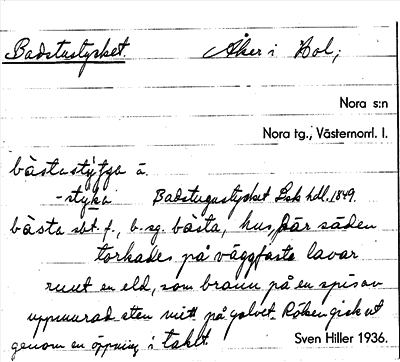 Badstustycket. Åker i Hol;
Nora s:n
Nora tg., Västernorrl. l.
bàstastýtja ä.
-styka Badstugustycket Lsk hdl. 1849.
bàsta sbt. f., b. sg. bàsta, hus, där säden
torkades på väggfasta lavar
runt en eld, som brann på en spis av
uppmurad sten mitt på golvet. Röken gick ut
genom en öppning i taket.
Sven Hiller 1936.